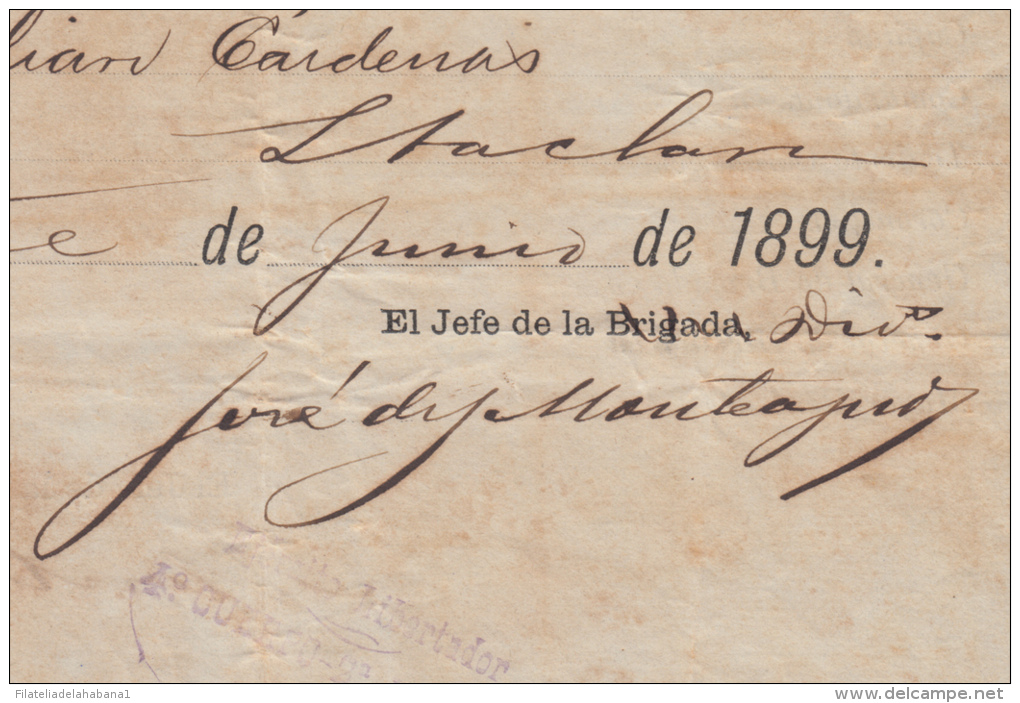 Cárdenas
Staclara
de Junio de 1899.
El Jefe de la Brigada, Divn.
José de J Monteagudo
Libertador
4º
Filateliadelahabana1
www.delcampe.net